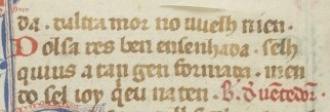 da. daltra mor no uuelh nien.
Dolsa res ben ensenhada. selh
quius a tan gen formada. men
do sel ioy q̃eu naten. B. dueẽtedor̃.